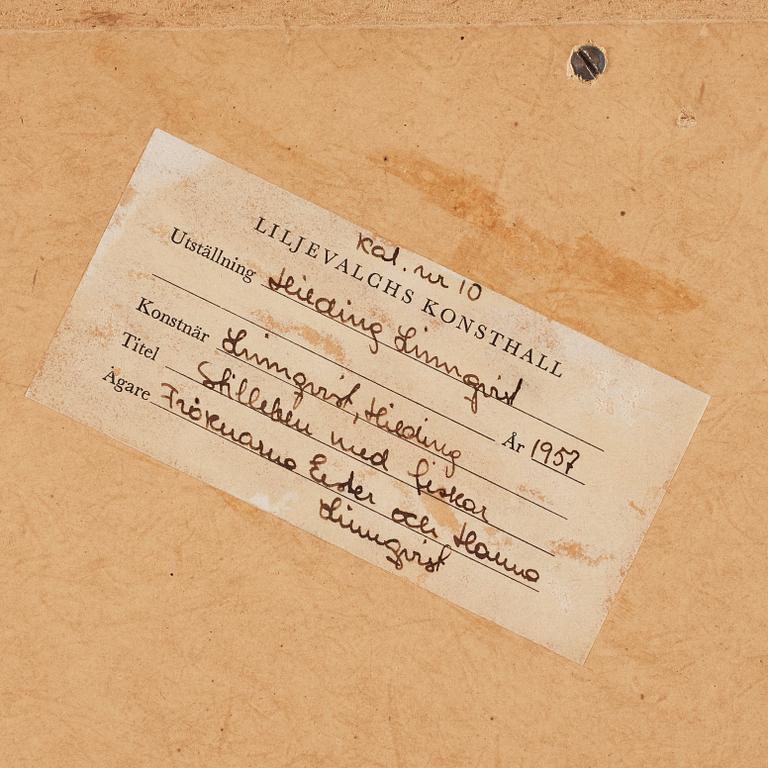 Kat. nr 10
LILJEVALCHS KONSTHALL
Utställning Hilding Linnqvist
År 1957
Konstnär Linnqvist, Hilding
Titel Stilleben med fiskar
Ägare Fröknarna Ester och Hanna
Linnqvist